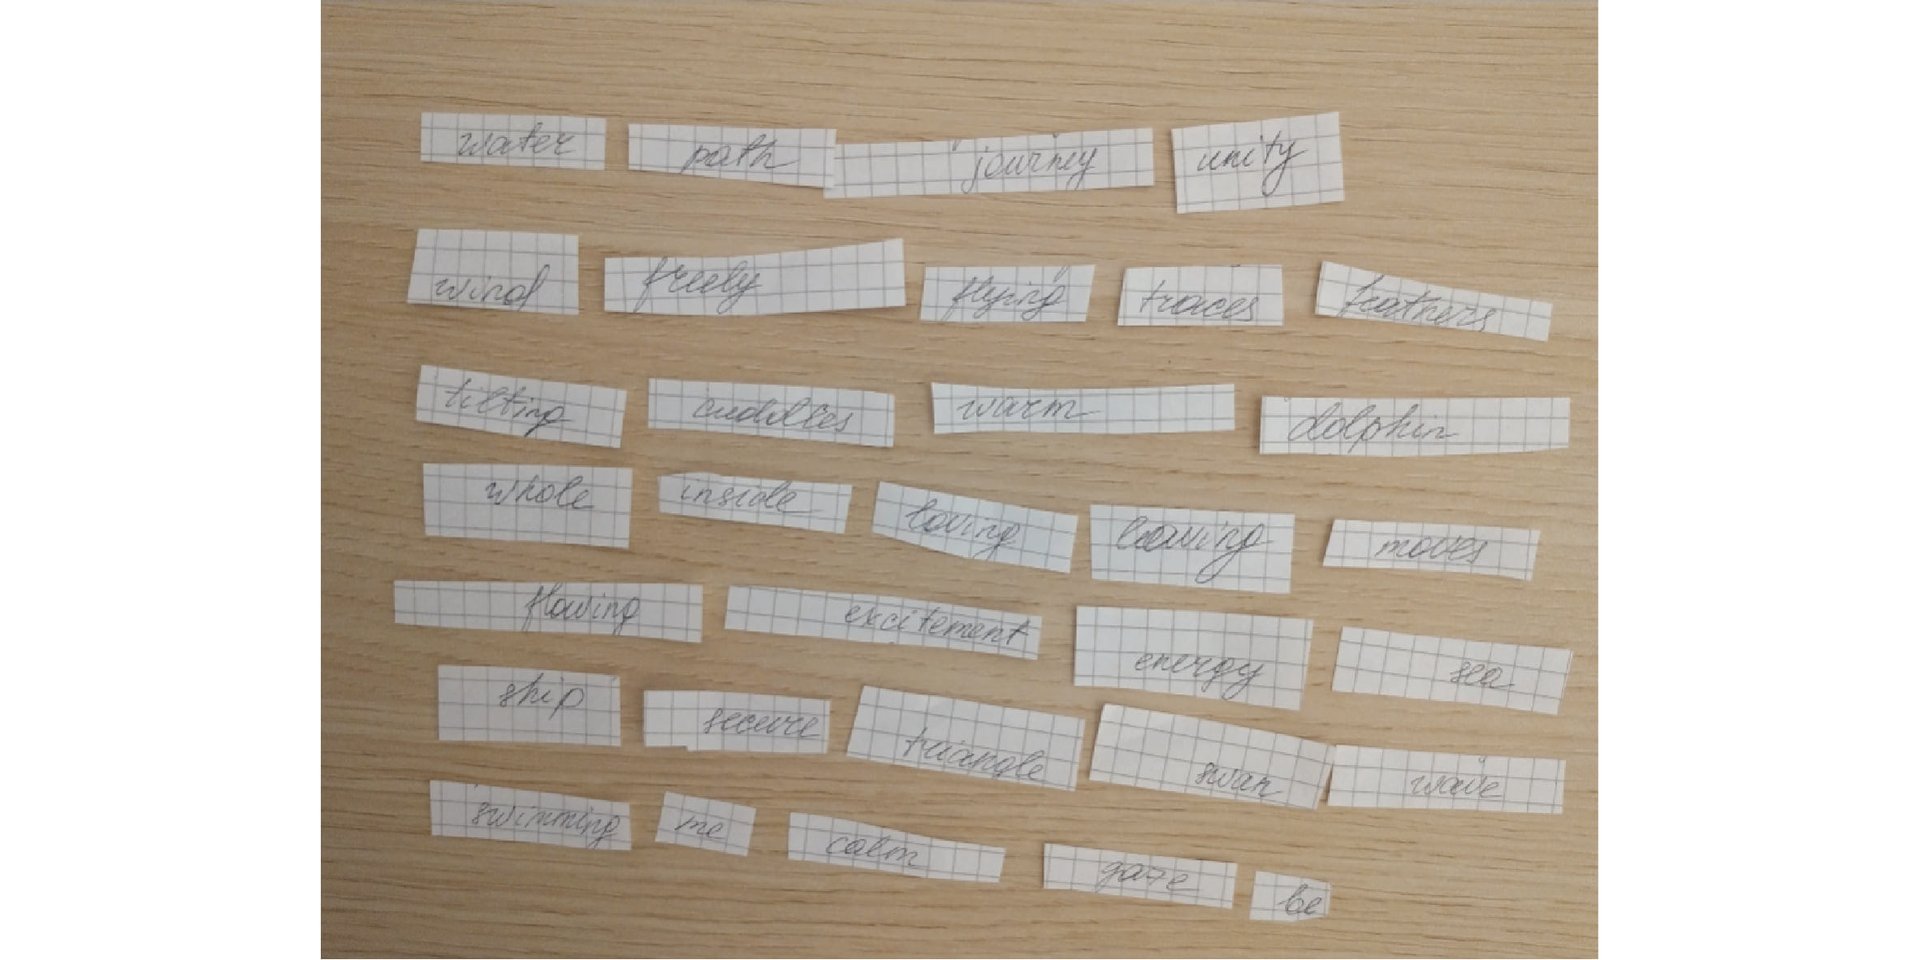 water path journey unity
wind freely flying traces feathers
tilting cuddles warm dolphin
whole inside loving leaving moves
flowing excitement energy sea
ship secure triangle swan wave
swimming me calm gaze be